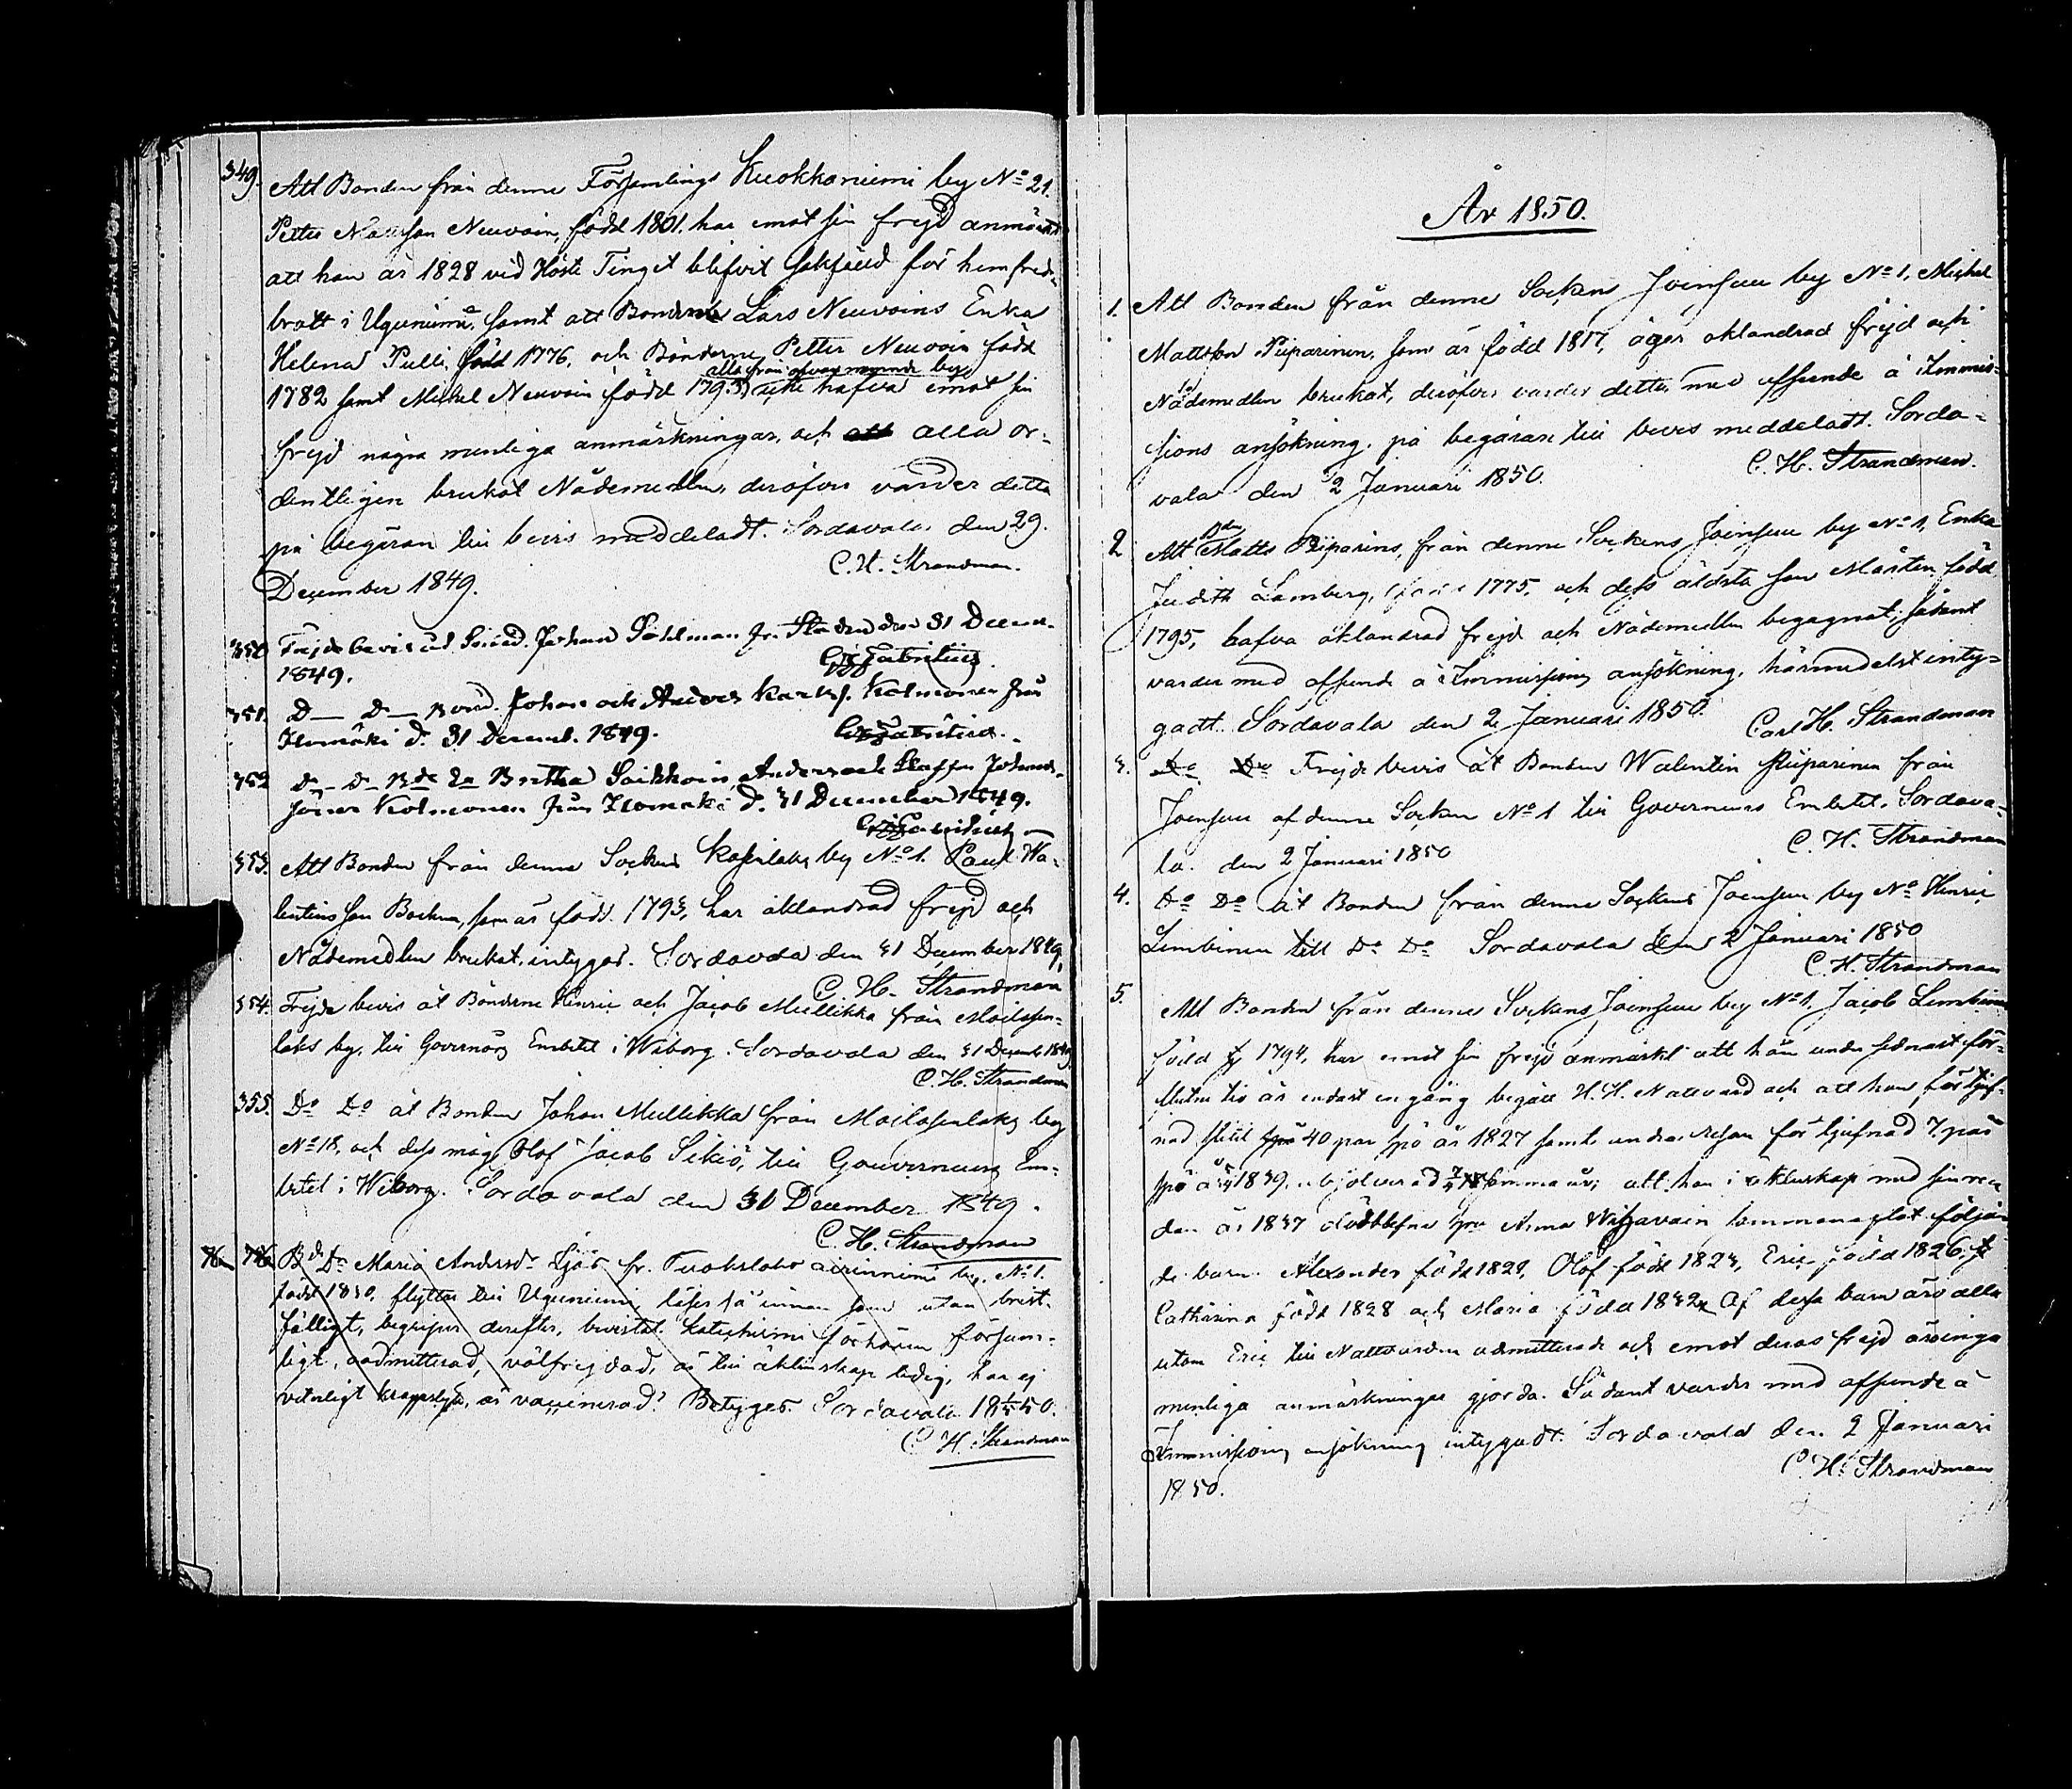 349. Att Bonden från denne Församlings Kuokkaniemi by No 21.
Petter Mattsson Neuvoin, född 1801. har emot sin frejd anmärkt
att han år 1828 vid Höste Tinget blifvit sakfälld för hemfreds-
brott i Uguniemi, samt att Bondens Lars Neuvoins Enka
Helena Pulli, född 1776, och Bönderne Petter Neuvoin född
alla från ofvannemnde by
1782 samt Michel Neuvoin född 1793, icke hafva emot sin
frejd några menliga anmärkningar, och alla or-
dentligen brukat Nådemedlen, deröfver varder detta
på begäran till bevis meddeladt. Sordavala den 29.
December 1849. C. H. Strandman.
350 Frejdebevis åt Johan den 31 Decemb.
1849.
351. D— D— Bond. Johan och Anders Kolmonen från
Ilomäki d. 31 Decemb. 1849.
352 D— D— Britha Soikkoin, Anders och Staffan Johans-
söner Kolmonen från Ilomäki d. 31 December 1849.
353. Att Bonden från denne Sockens by No 1. Paul Wa-
lentinsson Bockman, som är född 1793, har oklandrad frejd och
Nådemedlen brukat, intygas. Sordavala den 31 December 1849,
C. H. Strandman
354. Frejde bevis åt Bönderne Henric och Jacob Mullikka från Moilasen-
laks by, till Governörs Embetet i Wiborg. Sordavala den 31 Decemb 1849
C. H. Strandman
355. Do Do åt Bonden Johan Mullikka från Moilasenlaks by
No 18, och dess måg Olof Jacob Sikiö, till Gouverneurs Em-
betet i Wiborg. Sordavala den 31 December 1849.
C. H. Strandman
Bde Do Maria Andersdr fr. by. No 1.
född 1830, flyttar till Uguniemi, läser så innan som utan brist-
fälligt, begriper derefter, bevistat Katechismi förhören försum-
ligt, admitterad, välfrejdad, är till äktenskap ledig, har ej
veterligt är vaccinerad. Betygas. Sordavala 18 50.
C. H. Strandman
År 1850.
1. Att Bonden från denne Socken Joensuu by No 1, Michel
Mattsson Piiparinen, som är född 1817, äger oklandrad frejd och
Nådemedlen brukat, deröfver varder detta med afseende å Immis-
sions ansökning, på begäran till bevis meddeladt. Sorda-
vala den 2 Januari 1850. C. H. Strandman.
2 Att Matts Piiparins, från denne Sockens Joensuu by No 1, Enka
Judith Lamberg, född 1775, och dess äldsta son Mårten född
1795, hafva oklandrad frejd och Nådemedlen begagnat, sådant
varder med afseende å Immissions ansökning, härmedelst inty-
gadt. Sordavala den 2 Januari 1850. Carl H. Strandman
3. Do Do Frejde bevis åt Bonden Walentin Piiparinen från
Joensuu af denne Socken No 1 till Governeurs Embetet. Sordava-
la. den 2 Januari 1850 C. H. Strandman
4. Do Do åt Bonden från denne Sockens Joensuu by No Henric
Limbinen till Do Do Sordavala den 2 Januari 1850
C. H. Strandman
5. Att Bonden från denne Sockens Joensuu by No 1, Jacob Limbinen
född 1794, har emot sin frejd anmärkt att han under sednast för-
flutna tio år endast en gång begått H. H. Nattvard och att han för tjuf-
nad slitit 40 par spö år 1827 samt andra resan för tjufnad 7 par
spö år 1839, samma år; att han i äktenskap med sin re-
dan år 1837 Anna aflat följan-
de barn Alexander född 1822, Olof född 1823, Eric född 1826,
Catharina född 1828 och Maria född 1832. Af dessa barn äro alla
utom Eric till Nattvarden admitterade och emot deras frejd äro inga
menliga anmärkningar gjorda. Sådant varder med afseende å
Immissions ansökning intygadt. Sordavala den 2 Januari
1850. C. H. Strandman